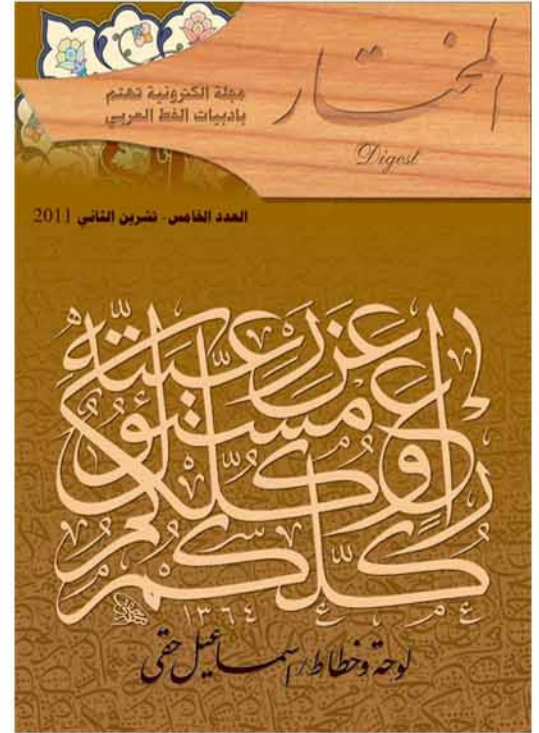 المختار
Digest
مجلة الكترونية تهتم
بادبيات الخط العربي
العدد الخامس - تشرين الثاني 2011
كلكم راع وكلكم مسئول عن رعيته
١٣٦٤
لوحة وخطاط / اسماعيل حقي